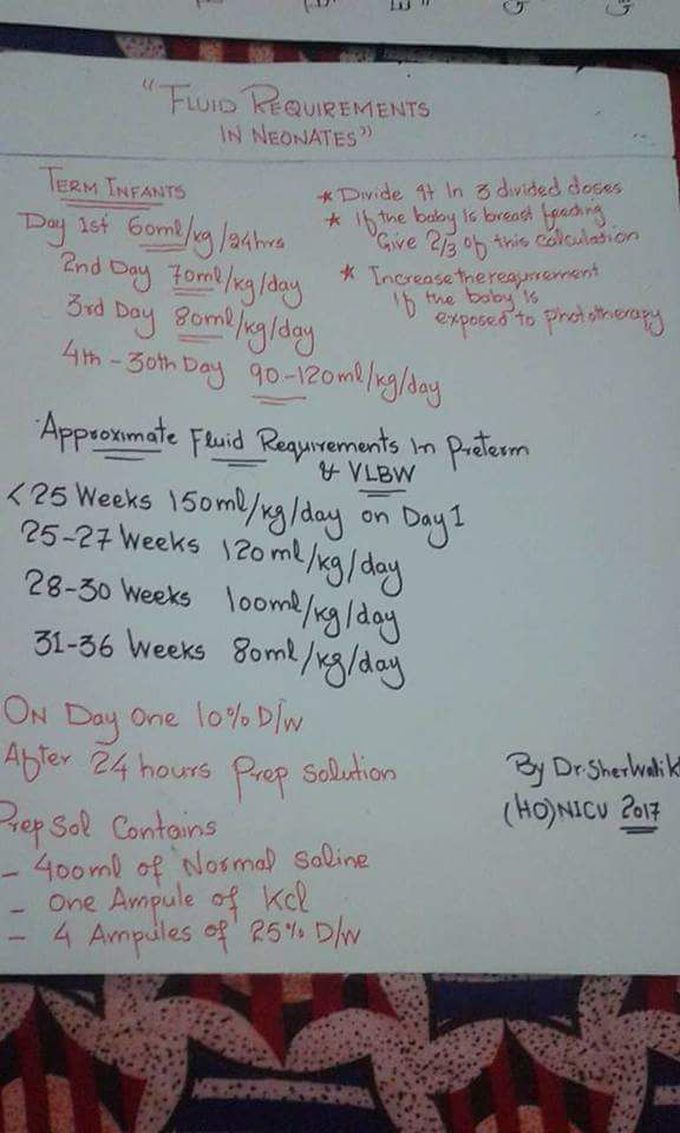 "FLUID REQUIREMENTS
IN NEONATES"
TERM INFANTS
Day 1st 60ml/kg/24hrs
2nd Day 70ml/kg/day
3rd Day 80ml/kg/day
4th - 30th Day 90-120ml/kg/day
* Divide It In 3 divided doses
* If the baby Is breast feeding
Give 2/3 of this calculation
* Increase the requirement
If the baby Is
exposed to phototherapy
Approximate Fluid Requirements In Preterm
& VLBW
<25 Weeks 150ml/kg/day on Day 1
25-27 Weeks 120ml/kg/day
28-30 Weeks 100ml/kg/day
31-36 Weeks 80ml/kg/day
ON Day One 10% D/W
After 24 hours Prep Solution
Prep Sol Contains
- 400ml of Normal Saline
- One Ampule of Kcl
- 4 Ampules of 25% D/W
By Dr. SherWalik
(HO) NICU 2017